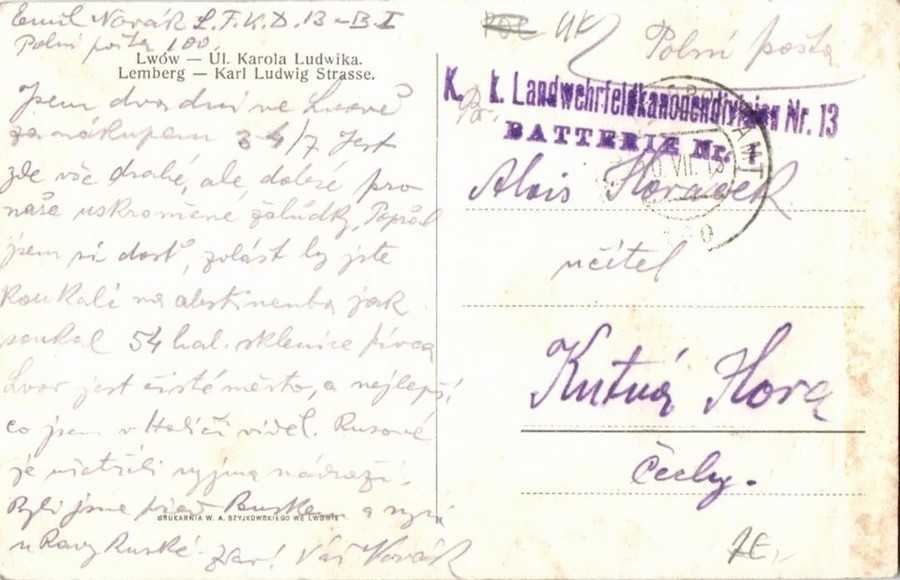 Emil Novák L.F.K.D. 13 – B I
Polní pošta 100.
Lwów — Ul. Karola Ludwika.
Lemberg — Karl Ludwig Strasse.
Jsem dva dni ve Lvově
za nákupem 3 4/7 Jest
zde vše drahé, ale dobré pro
naše uskromněné žaludky.
jsem si dosť, zvlášť by jste
koukali na abstinenta jak
54 hal. sklenice piva
Lvov jest čisté město, a nejlepší
co jsem v Haliči viděl. Rusové
je vyjma nádraží.
Byli jsme před Buskem a nyní
u Ravy Ruské. Zdar! Váš Novák
DRUKARNIA W. A. SZYJKOWSKIEGO WE LWOWIE
Polní pošta
K. k. Landwehrfeldkanonendivision Nr. 13
BATTERIE Nr. 1
VII. 15
100
Alois Horáček
učitel
Kutná Hora
Čechy.